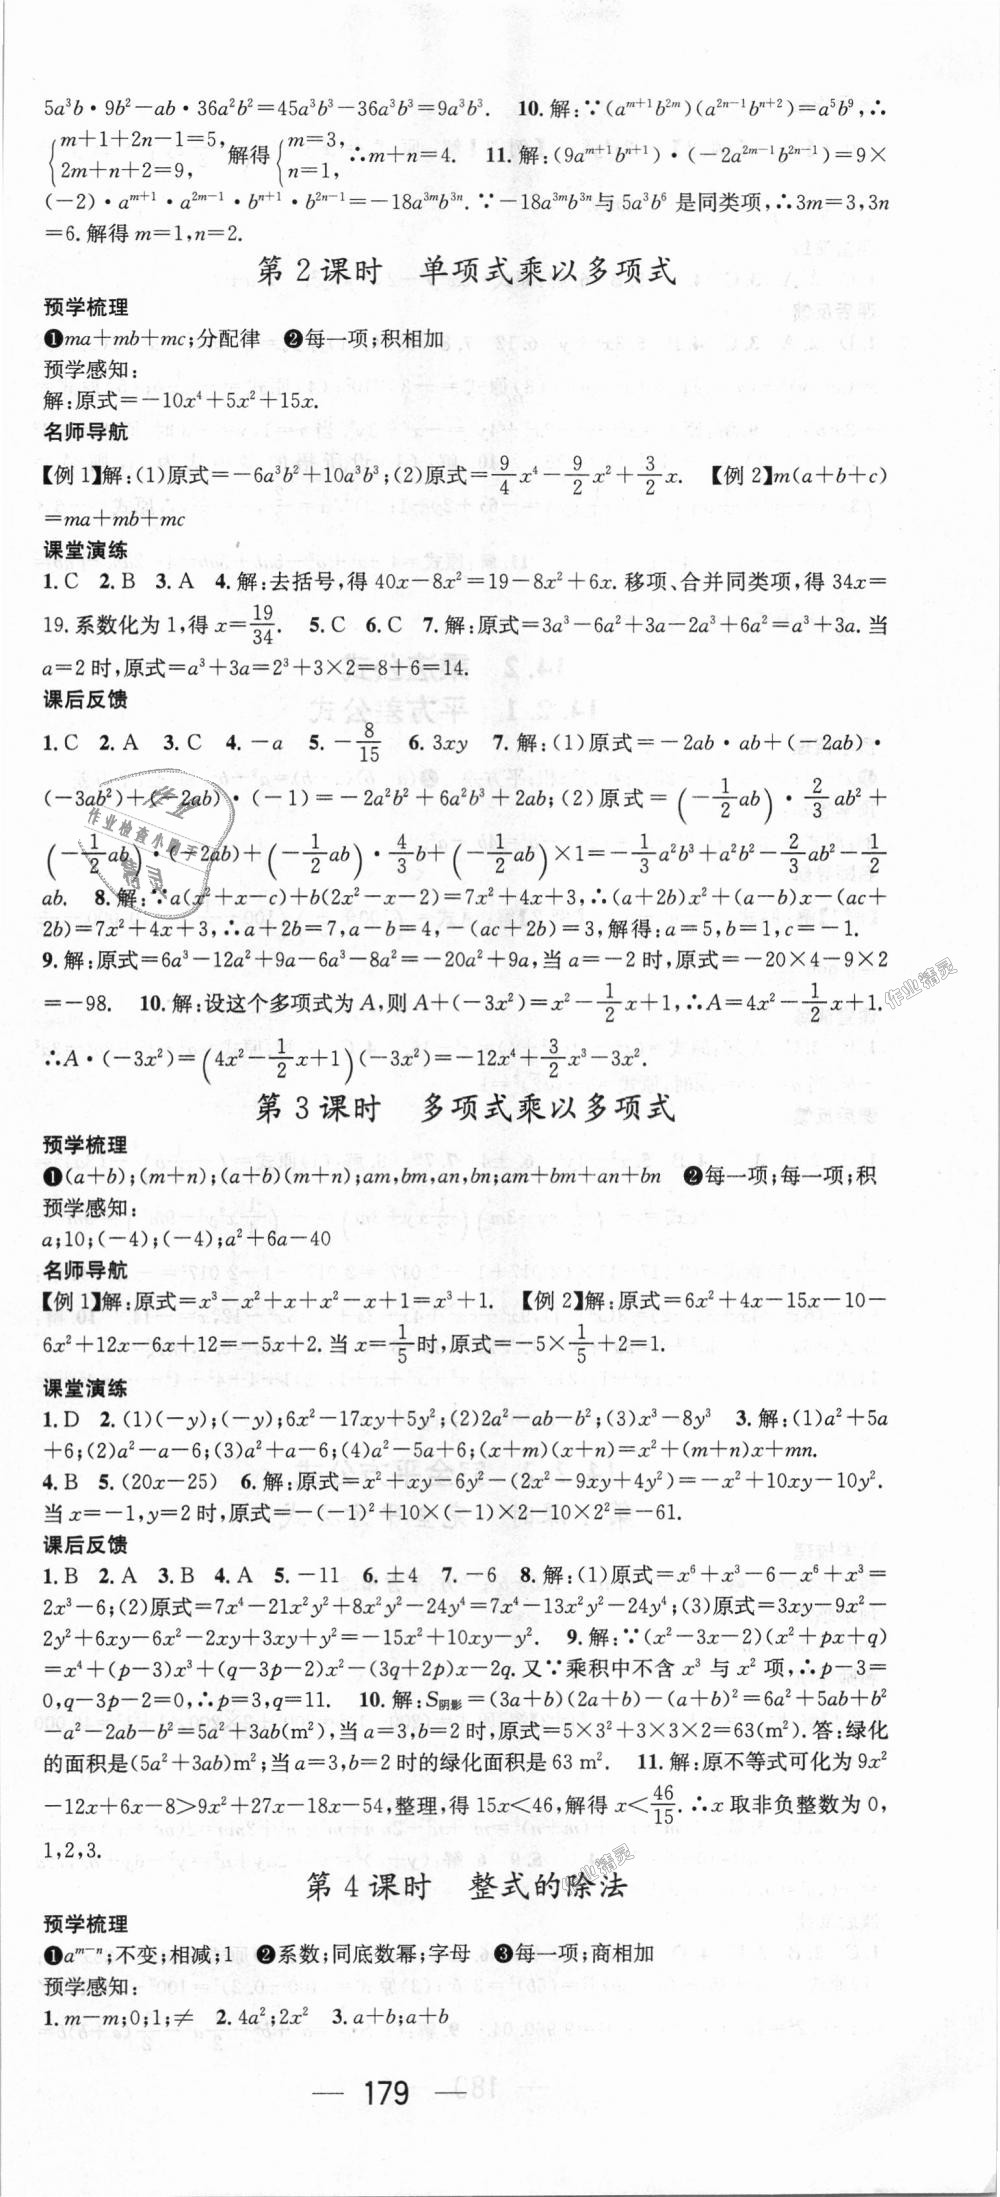 5a³b·9b²-ab·36a²b²=45a³b³-36a³b³=9a³b³. 10.解:∵(aᵐ⁺¹b²ᵐ)(a²ⁿ⁻¹bⁿ⁺²)=a⁵b⁹,∴
{m+1+2n-1=5, 2m+n+2=9, 解得{m=3, n=1, ∴m+n=4. 11.解:(9aᵐ⁺¹bⁿ⁺¹)·(-2a²ᵐ⁻¹b²ⁿ⁻¹)=9×
(-2)·aᵐ⁺¹·a²ᵐ⁻¹·bⁿ⁺¹·b²ⁿ⁻¹=-18a³ᵐb³ⁿ.∵-18a³ᵐb³ⁿ与5a³b⁶是同类项,∴3m=3,3n
=6.解得m=1,n=2.
第2课时 单项式乘以多项式
预学梳理
❶ma+mb+mc;分配律 ❷每一项;积相加
预学感知:
解:原式=-10x⁴+5x²+15x.
名师导航
【例1】解:(1)原式=-6a³b²+10a³b³;(2)原式=9/4x⁴-9/2x²+3/2x. 【例2】m(a+b+c)
=ma+mb+mc
课堂演练
1.C 2.B 3.A 4.解:去括号,得40x-8x²=19-8x²+6x.移项、合并同类项,得34x=
19.系数化为1,得x=19/34. 5.C 6.C 7.解:原式=3a³-6a²+3a-2a³+6a²=a³+3a.当
a=2时,原式=a³+3a=2³+3×2=8+6=14.
课后反馈
1.C 2.A 3.C 4.-a 5.-8/15 6.3xy 7.解:(1)原式=-2ab·ab+(-2ab)·
(-3ab²)+(-2ab)·(-1)=-2a²b²+6a²b³+2ab;(2)原式=(-1/2ab)·2/3ab²+
(-1/2ab)·(-2ab)+(-1/2ab)·4/3b+(-1/2ab)×1=-1/3a²b³+a²b²-2/3ab²-1/2
ab. 8.解:∵a(x²+x-c)+b(2x²-x-2)=7x²+4x+3,∴(a+2b)x²+(a-b)x-(ac+
2b)=7x²+4x+3,∴a+2b=7,a-b=4,-(ac+2b)=3,解得:a=5,b=1,c=-1.
9.解:原式=6a³-12a²+9a-6a³-8a²=-20a²+9a,当a=-2时,原式=-20×4-9×2
=-98. 10.解:设这个多项式为A,则A+(-3x²)=x²-1/2x+1,∴A=4x²-1/2x+1.
∴A·(-3x²)=(4x²-1/2x+1)(-3x²)=-12x⁴+3/2x³-3x².
第3课时 多项式乘以多项式
预学梳理
❶(a+b);(m+n);(a+b)(m+n);am,bm,an,bn;am+bm+an+bn ❷每一项;每一项;积
预学感知:
a;10;(-4);(-4);a²+6a-40
名师导航
【例1】解:原式=x³-x²+x+x²-x+1=x³+1. 【例2】解:原式=6x²+4x-15x-10-
6x²+12x-6x+12=-5x+2.当x=1/5时,原式=-5×1/5+2=1.
课堂演练
1.D 2.(1)(-y);(-y);6x²-17xy+5y²;(2)2a²-ab-b²;(3)x³-8y³ 3.解:(1)a²+5a
+6;(2)a²-a-6;(3)a²+a-6;(4)a²-5a+6;(x+m)(x+n)=x²+(m+n)x+mn.
4.B 5.(20x-25) 6.解:原式=x²+xy-6y²-(2x²-9xy+4y²)=-x²+10xy-10y².
当x=-1,y=2时,原式=-(-1)²+10×(-1)×2-10×2²=-61.
课后反馈
1.B 2.A 3.B 4.A 5.-11 6.±4 7.-6 8.解:(1)原式=x⁶+x³-6-x⁶+x³=
2x³-6;(2)原式=7x⁴-21x²y²+8x²y²-24y⁴=7x⁴-13x²y²-24y⁴;(3)原式=3xy-9x²-
2y²+6xy-6x²-2xy+3xy+y²=-15x²+10xy-y². 9.解:∵(x²-3x-2)(x²+px+q)
=x⁴+(p-3)x³+(q-3p-2)x²-(3q+2p)x-2q.又∵乘积中不含x³与x²项,∴p-3=
0,q-3p-2=0,∴p=3,q=11. 10.解:S阴影=(3a+b)(2a+b)-(a+b)²=6a²+5ab+b²
-a²-2ab-b²=5a²+3ab(m²),当a=3,b=2时,原式=5×3²+3×3×2=63(m²).答:绿化
的面积是(5a²+3ab)m²;当a=3,b=2时的绿化面积是63 m². 11.解:原不等式可化为9x²
-12x+6x-8>9x²+27x-18x-54,整理,得15x<46,解得x<46/15.∴x取非负整数为0,
1,2,3.
第4课时 整式的除法
预学梳理
❶aᵐ⁻ⁿ;不变;相减;1 ❷系数;同底数幂;字母 ❸每一项;商相加
预学感知:
1.m-m;0;1;≠ 2.4a²;2x² 3.a+b;a+b
— 179 —
作业检查小助手
精灵
作业精灵
作业精灵